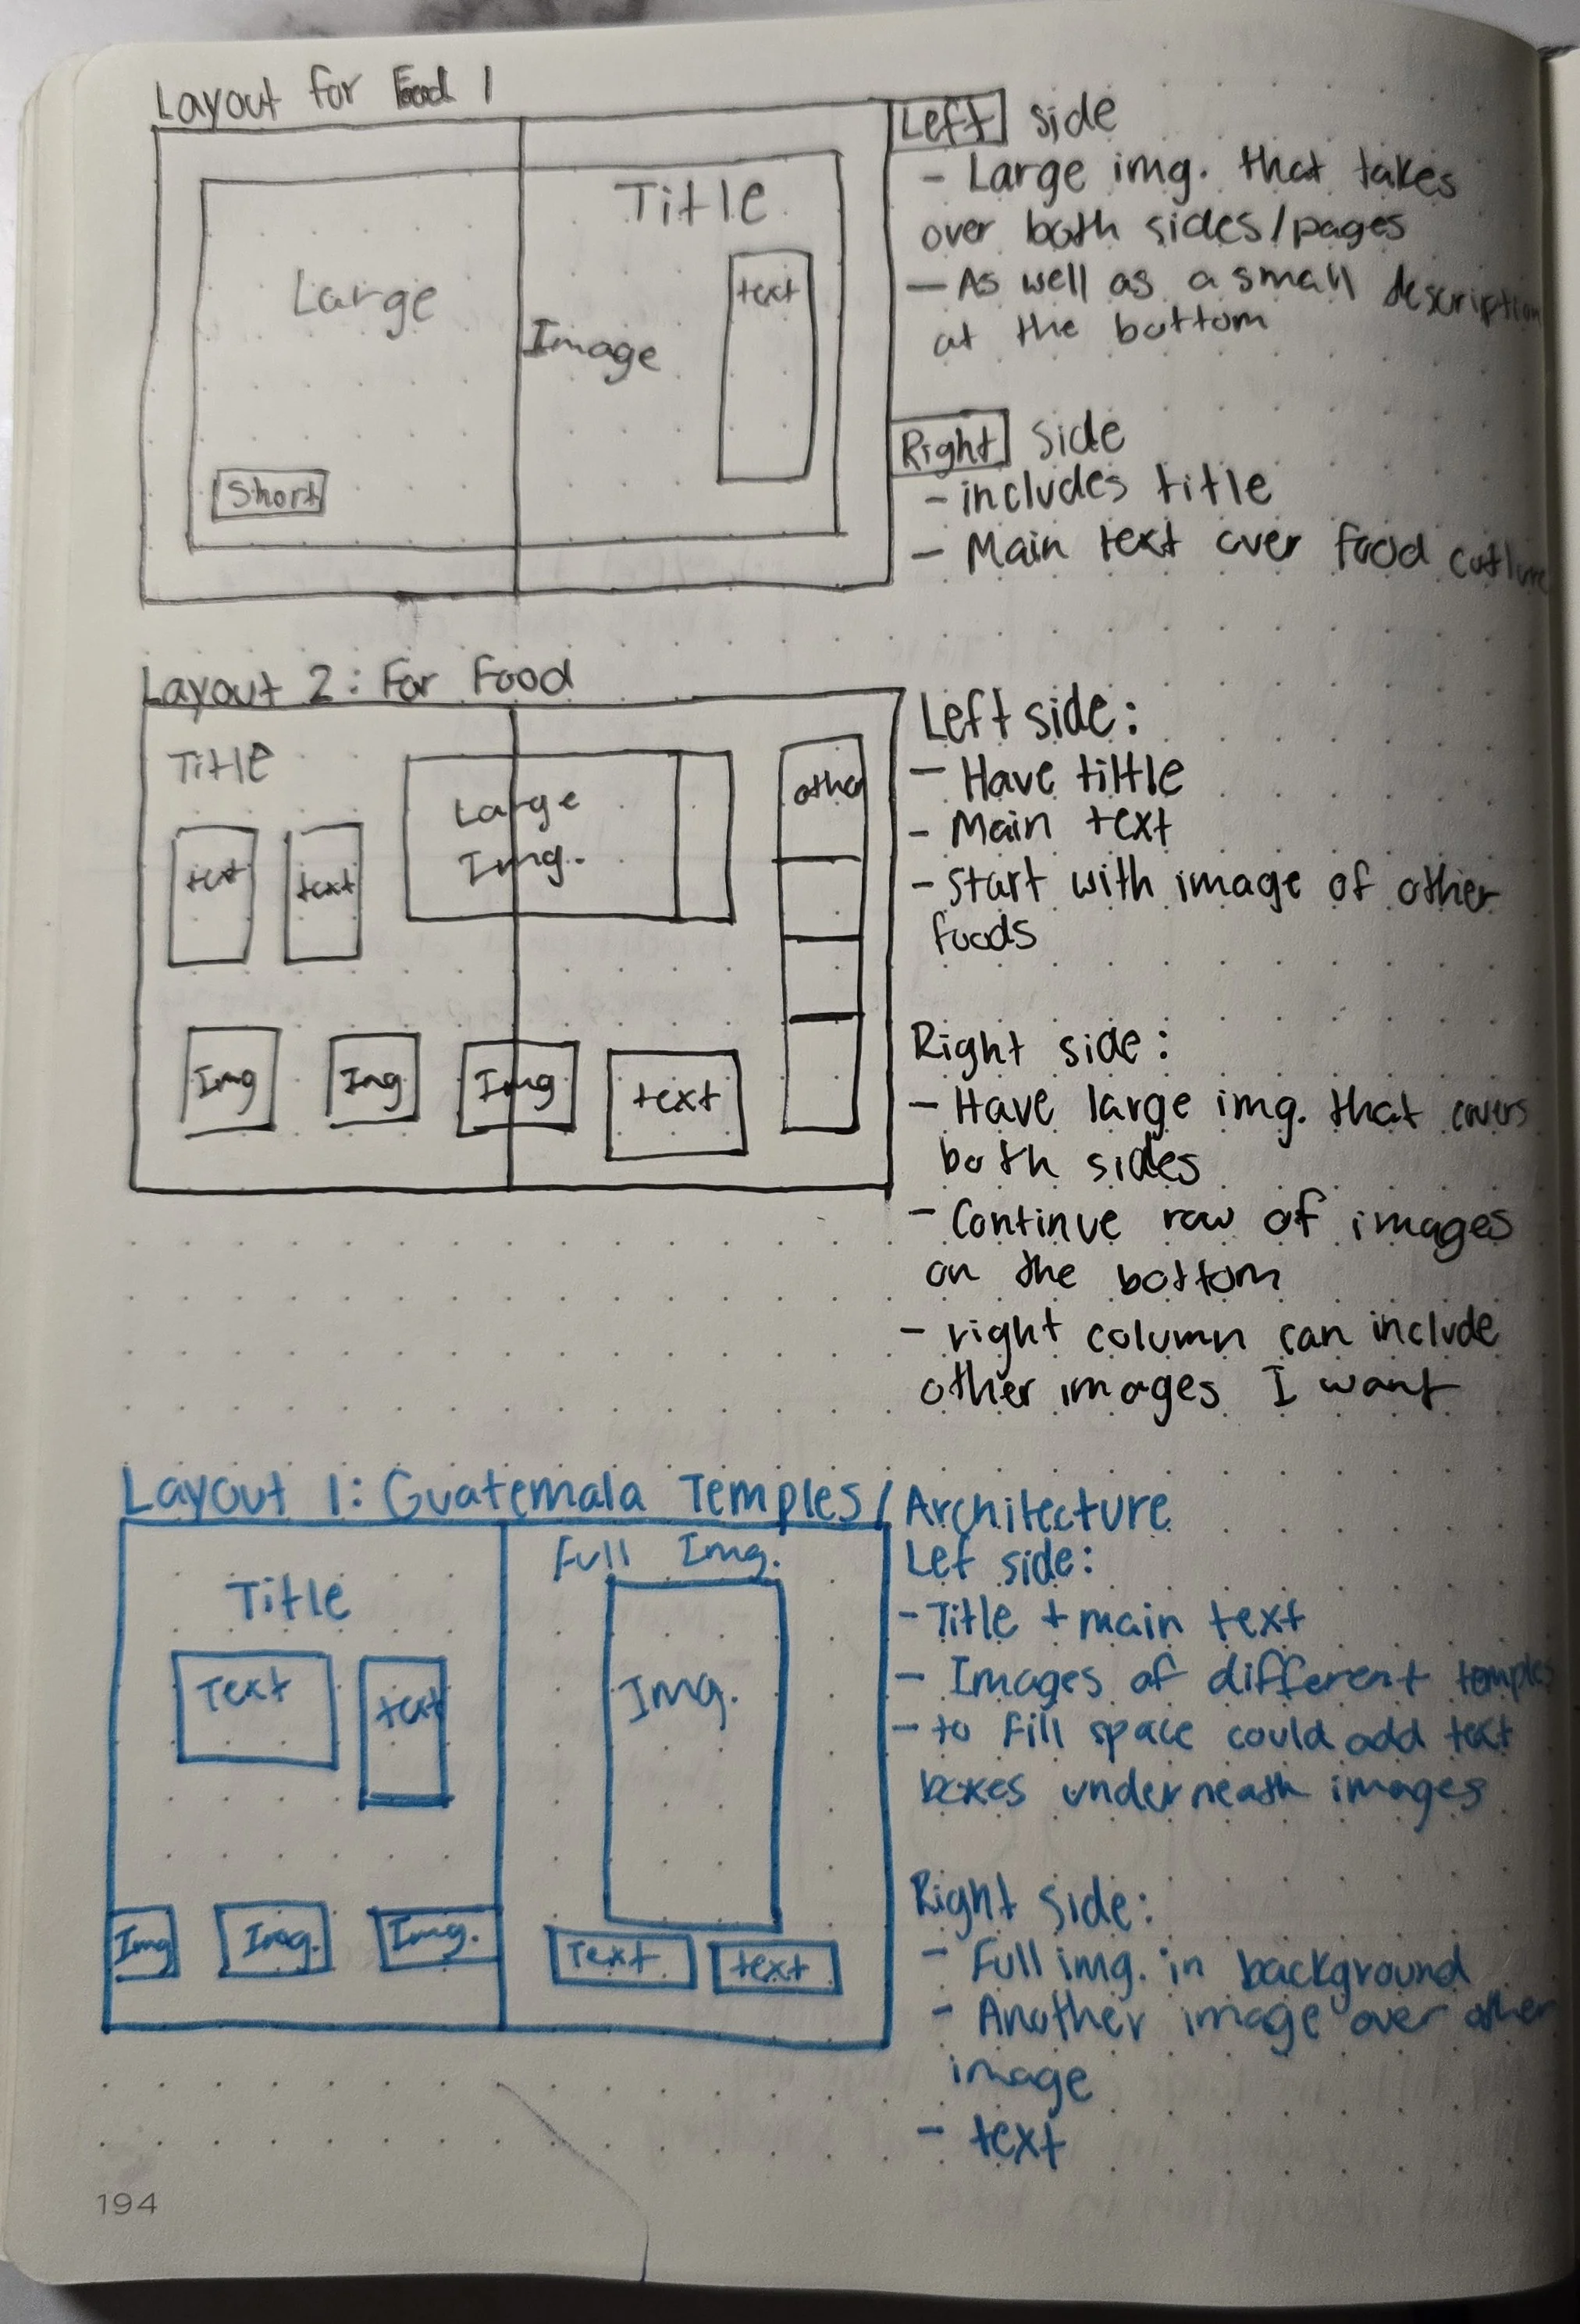 Layout for Food 1
Large
Image
Title
text
Short
Left side
- Large img. that takes
over both sides/pages
- As well as a small description
at the bottom
Right side
- includes title
- Main text over food
Layout 2: For Food
Title
text
text
Large
Img.
other
Img
Img
Img
text
Left side:
- Have tiltle
- Main text
- Start with image of other
foods
Right side:
- Have large img. that covers
both sides
- Continue row of images
on the bottom
- right column can include
other images I want
Layout 1: Guatemala Temples/Architecture
Title
Text
text
Img
Img.
Img.
Full Img.
Img.
Text
text
Lef side:
- Title + main text
- Images of different temples
- to fill space could add text
boxes underneath images
Right side:
- Full img. in background
- Another image over other
image
- text
194